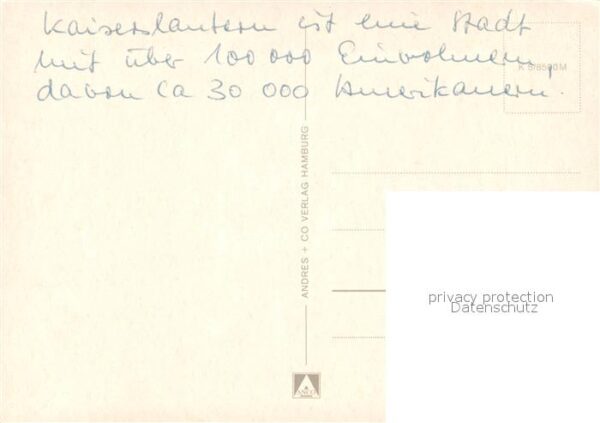 Kaiserslautern ist eine Stadt
mit über 100 000 Einwohnern,
davon ca 30 000 Amerikanern.
ANDRES + CO VERLAG HAMBURG
privacy protection
Datenschutz